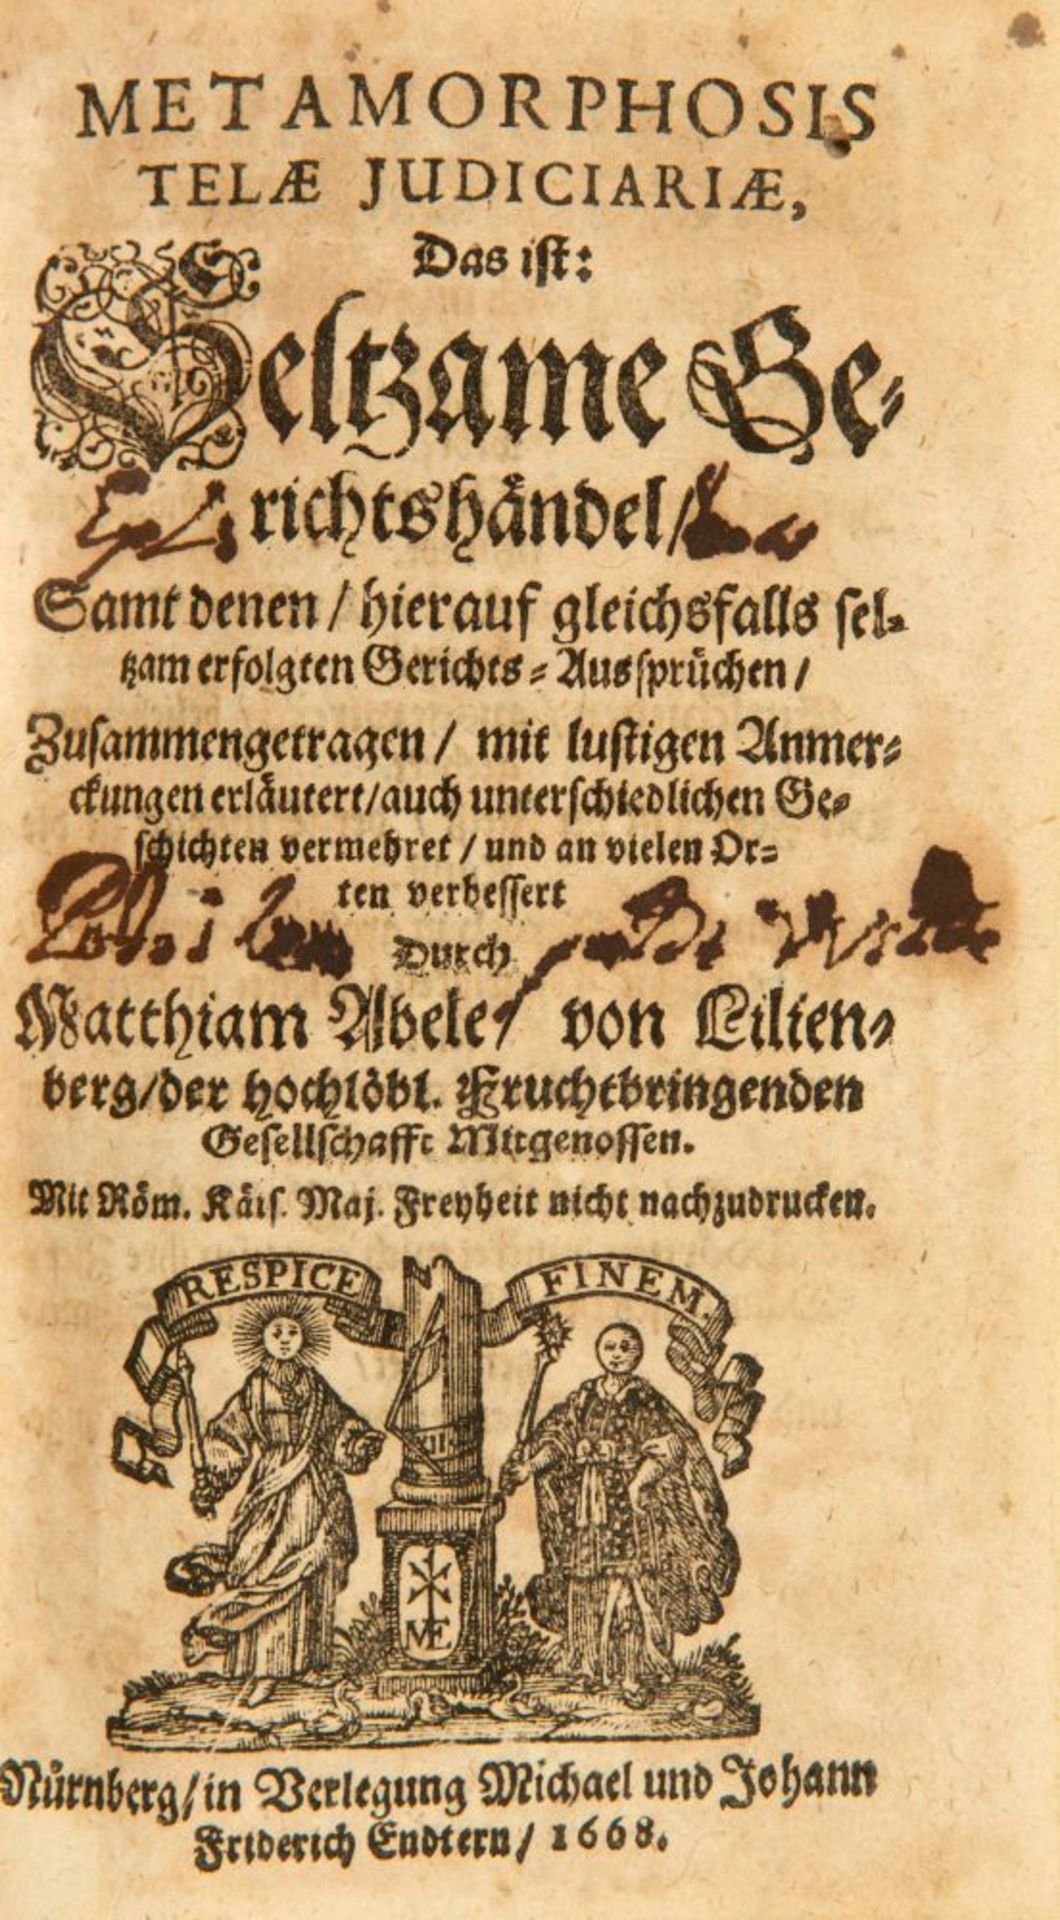 METAMORPHOSIS
TELÆ JUDICIARIÆ,
Das ist:
Seltzame Ge-
richtshändel/
Samt denen / hierauf gleichsfalls sel-
tzam erfolgten Gerichts-Aussprüchen /
Zusammengetragen / mit lustigen Anmer-
ckungen erläutert/auch unterschiedlichen Ge-
schichten vermehret / und an vielen Or-
ten verbessert
Durch
Matthiam Abele/ von Lilien-
berg/der hochlöbl. Fruchtbringenden
Gesellschafft Mitgenossen.
Mit Röm. Käis. Maj. Freyheit nicht nachzudrucken.
RESPICE FINEM.
XII
ME
Nürnberg/in Verlegung Michael und Johann
Friderich Endtern/ 1668.